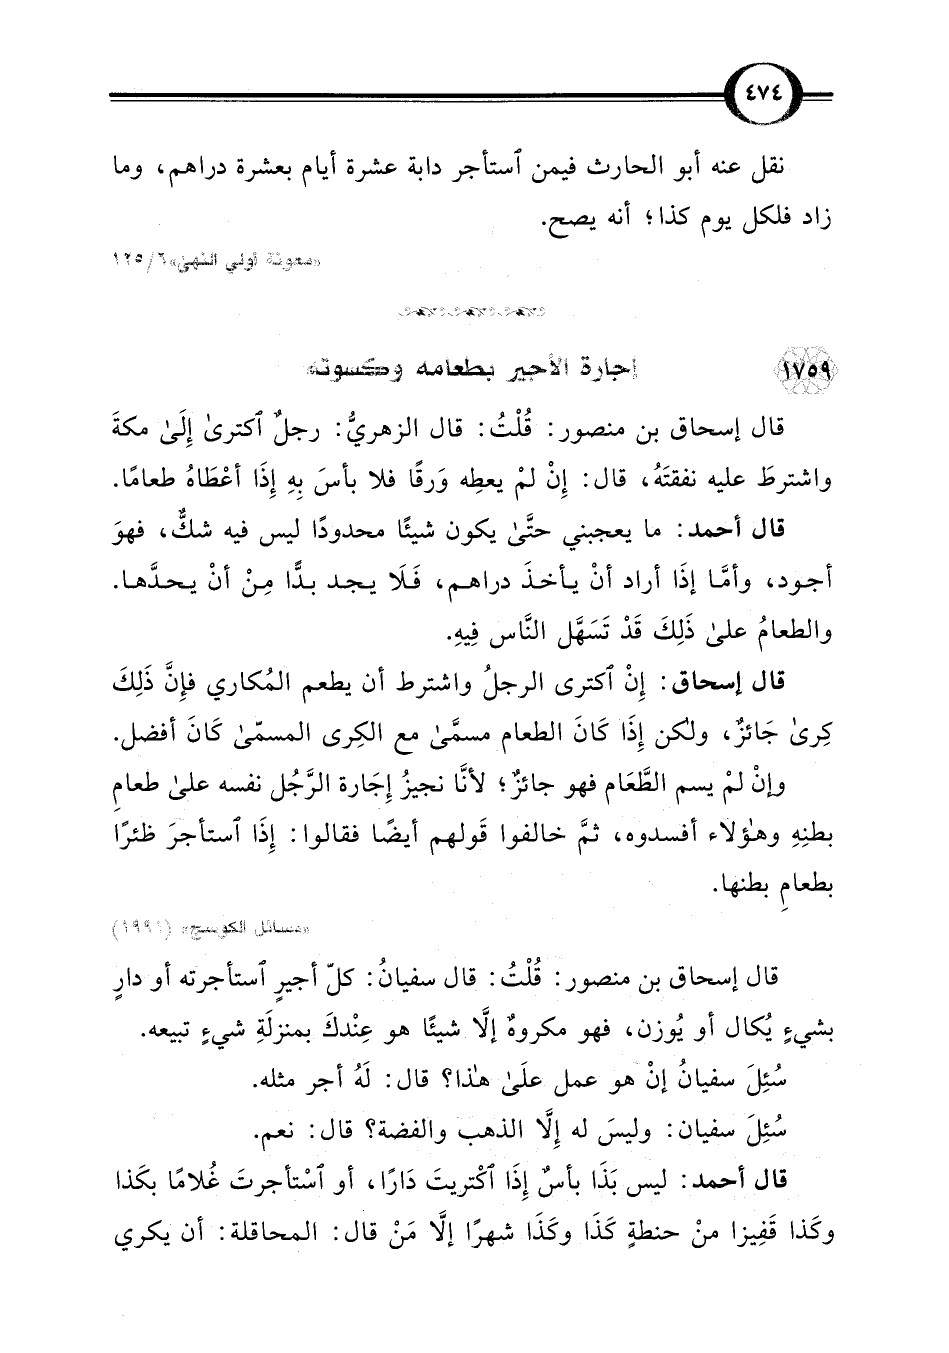 ٤٧٤
نقل عنه أبو الحارث فيمن ٱستأجر دابة عشرة أيام بعشرة دراهم، وما
زاد فلكل يوم كذا؛ أنه يصح.
«معونة أولي النهى» ٦/ ١٢٥
١٧٥٩ إجارة الأجير بطعامه وكسوته
قال إسحاق بن منصور: قُلْتُ: قال الزهريُّ: رجلٌ ٱكترىٰ إِلَىٰ مكةَ
واشترطَ عليه نفقتَهُ، قال: إِنْ لمْ يعطِه وَرقًا فلا بأسَ بِهِ إِذَا أعْطَاهُ طعامًا.
قال أحمد: ما يعجبني حتَّىٰ يكون شيئًا محدودًا ليس فيه شكٌّ، فهوَ
أجود، وأمَّا إِذَا أراد أنْ يأخذَ دراهم، فَلَا يجد بدًّا مِنْ أنْ يحدَّها.
والطعامُ علىٰ ذَلِكَ قَدْ تَسَهَّل النَّاس فِيهِ.
قال إسحاق: إِنْ ٱكترى الرجلُ واشترط أن يطعم المُكاري فإنَّ ذَلِكَ
كِرىٰ جَائزٌ، ولكن إِذَا كَانَ الطعام مسمَّىٰ مع الكِرى المسمّىٰ كَانَ أفضل.
وإنْ لمْ يسم الطَّعَام فهو جائزٌ؛ لأنَّا نجيزُ إِجَارة الرَّجُل نفسه علىٰ طعامِ
بطنِهِ وهٰؤلاء أفسدوه، ثمَّ خالفوا قَولهم أيضًا فقالوا: إِذَا ٱستأجرَ ظئرًا
بطعامِ بطنها.
«مسائل الكوسج» (١٩٩١)
قال إسحاق بن منصور: قُلْتُ: قال سفيانُ: كلّ أجيرٍ ٱستأجرته أو دارٍ
بشيءٍ يُكال أو يُوزن، فهو مكروهٌ إلَّا شيئًا هو عِنْدكَ بمنزلَةِ شيءٍ تبيعه.
سُئِلَ سفيانُ إنْ هو عمل علَىٰ هذا؟ قال: لَهُ أجر مثله.
سُئِلَ سفيان: وليسَ له إلَّا الذهب والفضة؟ قال: نعم.
قال أحمد: ليس بَذَا بأسٌ إِذَا ٱكْتريتَ دَارًا، أو ٱسْتأجرتَ غُلامًا بكَذا
وكَذا قَفِيزا منْ حنطةٍ كَذَا وكَذَا شهرًا إلَّا مَنْ قال: المحاقلة: أن يكري